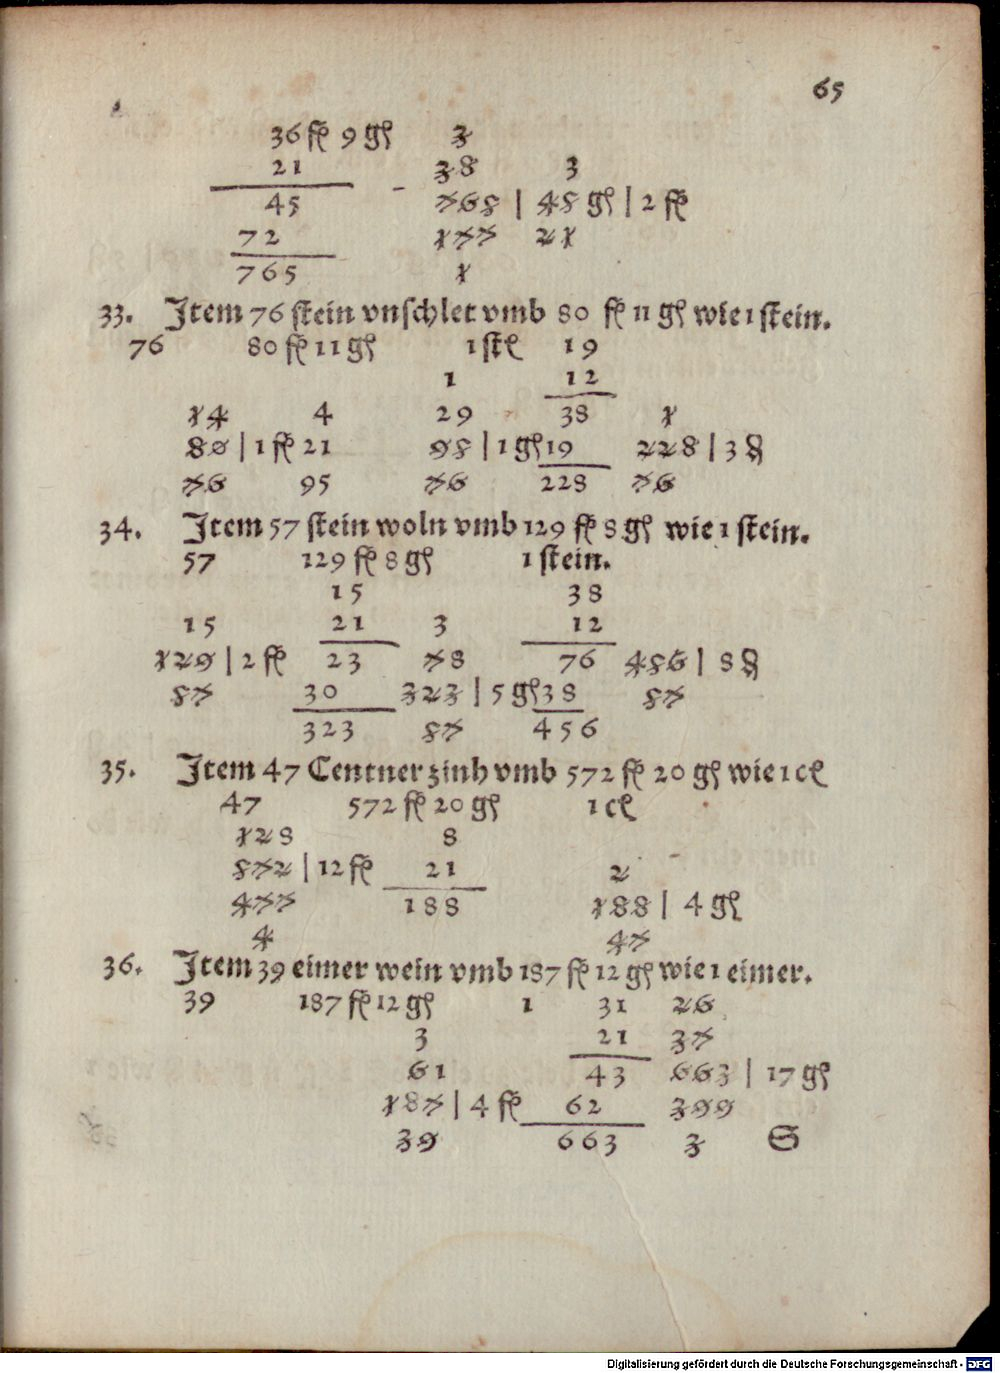 65
36 fl 9 gl 3
21 38 3
45 768 | 48 gl | 2 fl
72 177 21
765 1
33. Jtem 76 stein vnschlet vmb 80 fl 11 gl wie 1 stein.
76 80 fl 11 gl 1 stl 19
1 12
14 4 29 38 1
80 | 1 fl 21 98 | 1 gl 19 228 | 3 ₰
76 95 76 228 76
34. Jtem 57 stein woln vmb 129 fl 8 gl wie 1 stein.
57 129 fl 8 gl 1 stein.
15 38
15 21 3 12
129 | 2 fl 23 78 76 486 | 8 ₰
87 30 323 | 5 gl 38 87
323 87 456
35. Jtem 47 Centner zinh vmb 572 fl 20 gl wie 1 cl
47 572 fl 20 gl 1 cl
128 8
872 | 12 fl 21 2
477 188 188 | 4 gl
4 47
36. Jtem 39 eimer wein vmb 187 fl 12 gl wie 1 eimer.
39 187 fl 12 gl 1 31 26
3 21 37
61 43 663 | 17 gl
187 | 4 fl 62 399
39 663 3 S
Digitalisierung gefördert durch die Deutsche Forschungsgemeinschaft - DFG